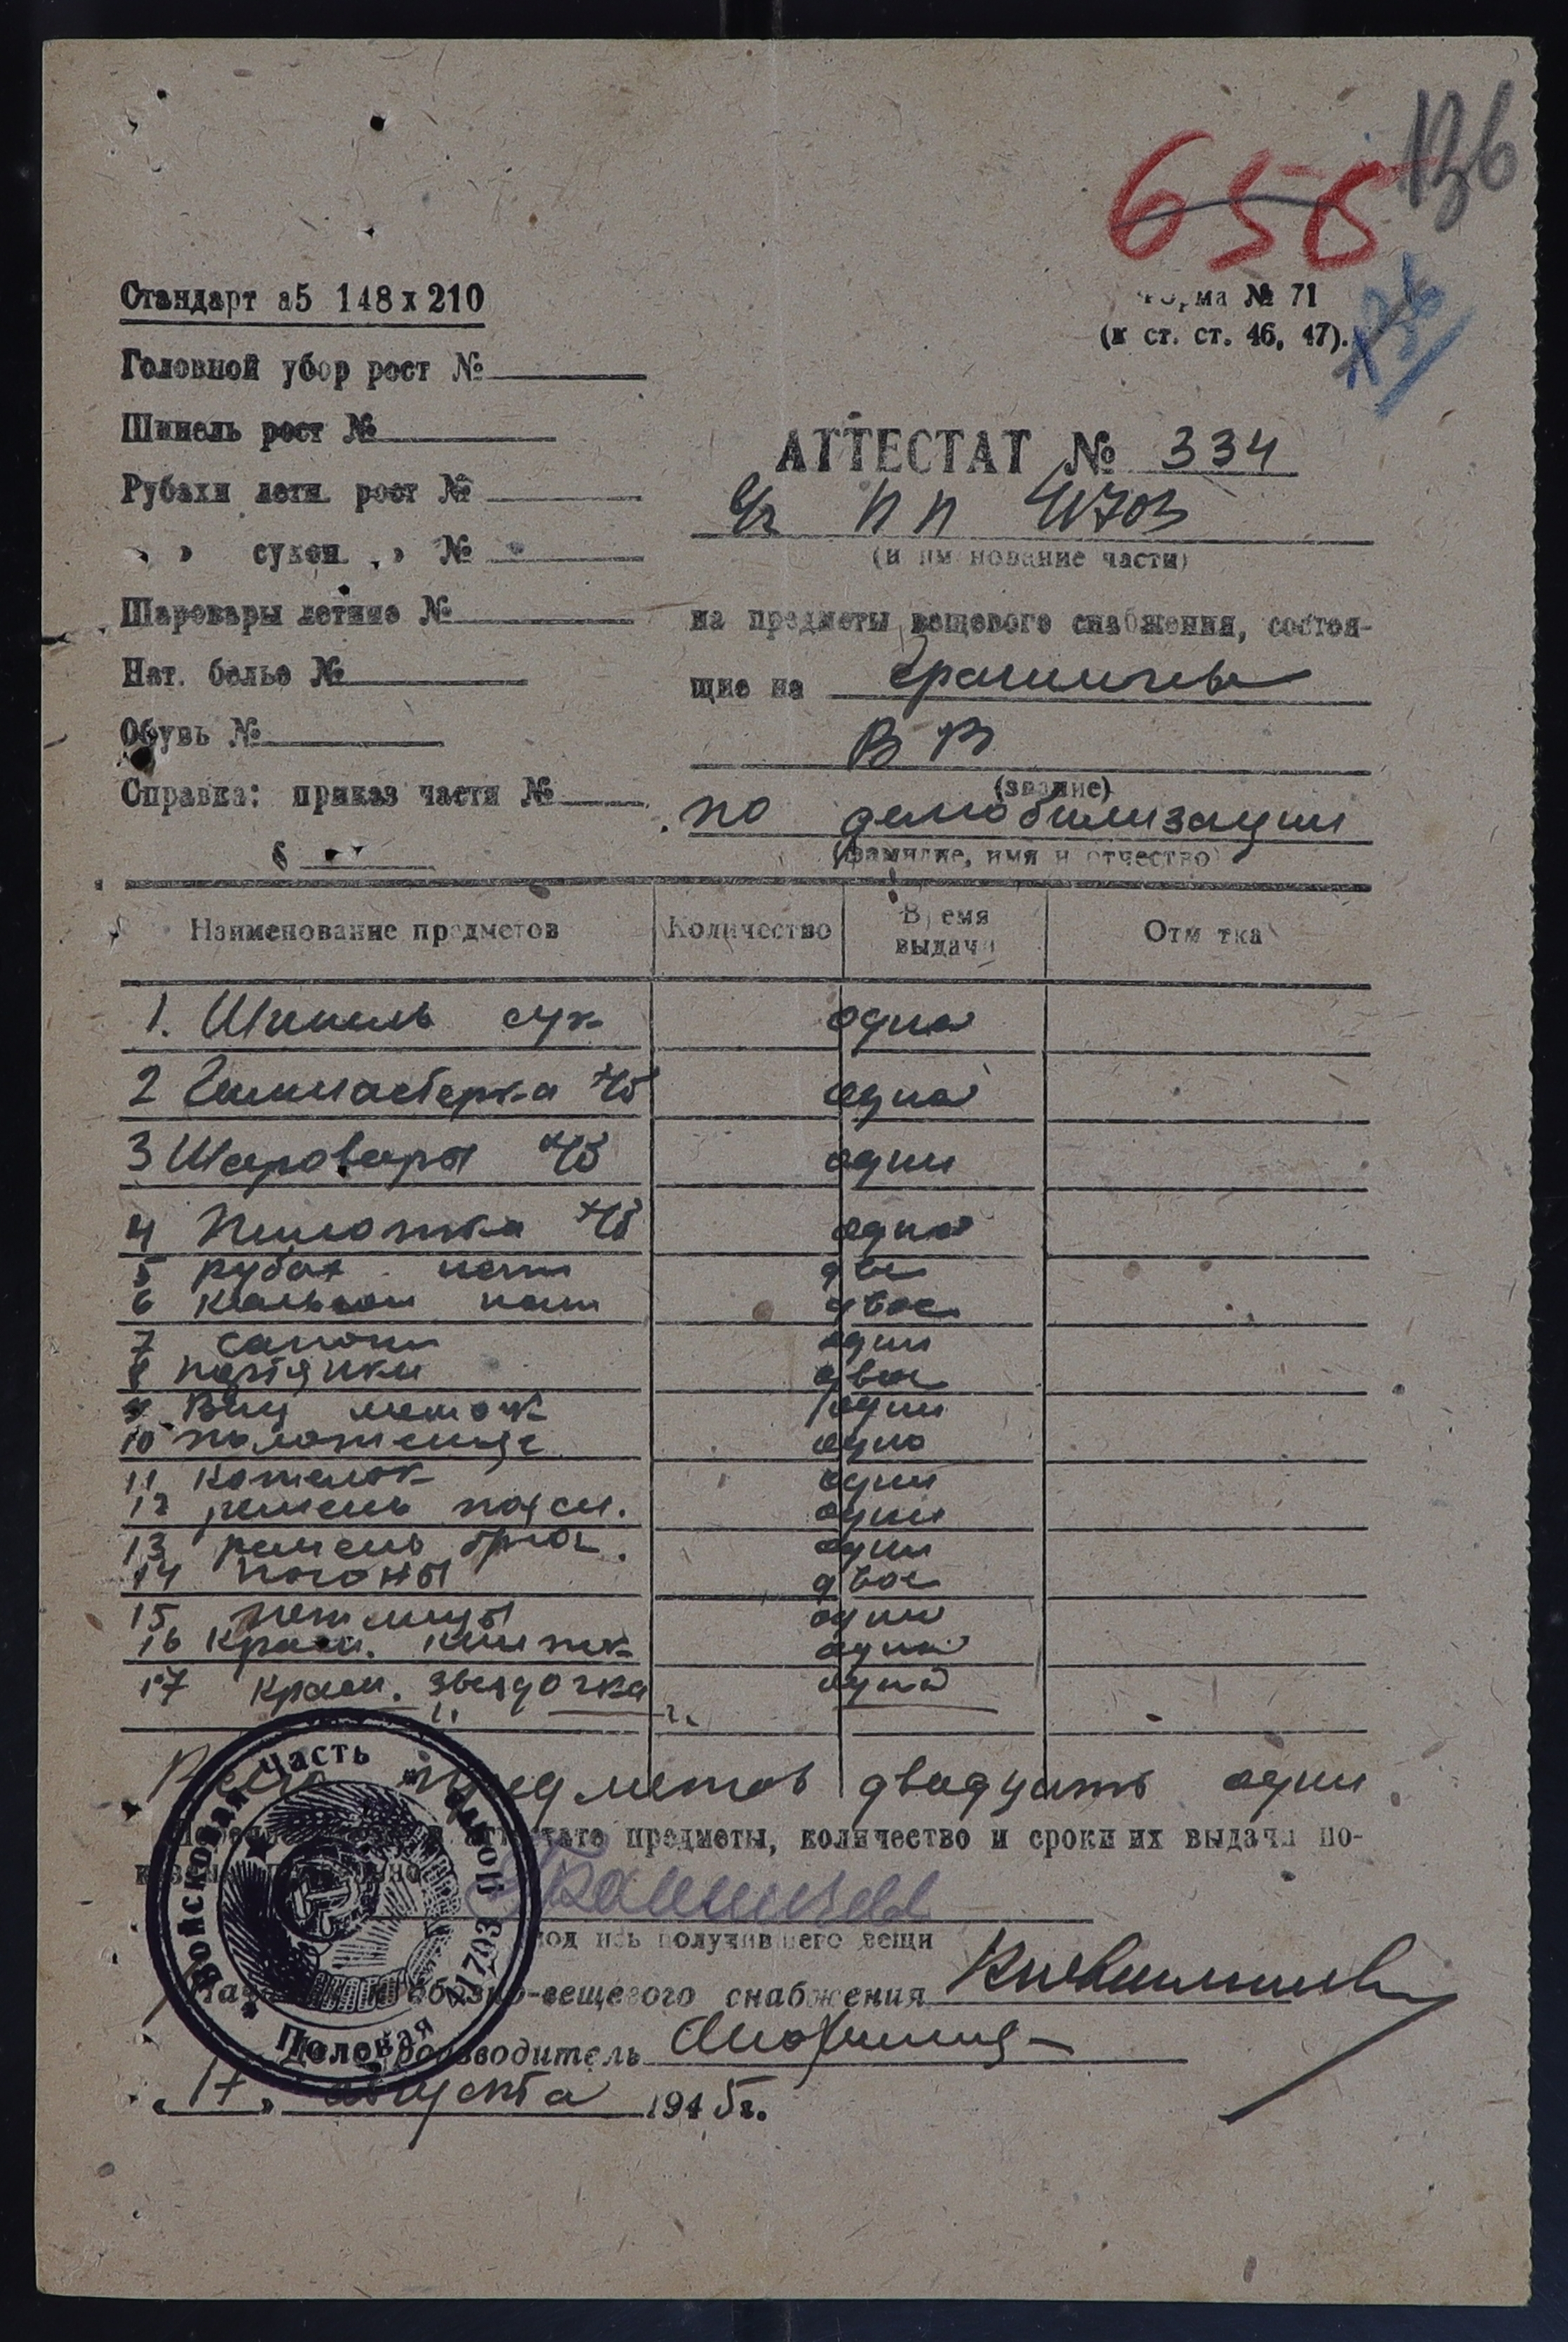 136
655
136
Стандарт а5 148 х 210
Форма № 71
(к ст. ст. 46, 47).
Головной убор рост №
Шинель рост №
Рубахи летн. рост №
» » сукон. » №
Шаровары летние №
Нат. белье №
Обувь №
Справка: приказ части №
§
АТТЕСТАТ № 334
пп 41703
(наименование части)
на предметы вещевого снабжения, состоя-
щие на
В В
(звание)
по демобилизации
(фамилие, имя и отчество)
Наименование предметов Количество Время выдачи Отметка
1. Шинель сук одна
2 Гимнастерка х/б одна
3 Шаровары х/б одни
4 Пилотка х/б одна
5 рубах нат две
6 кальсон нат двое
7 сапоги одни
8 портянки двое
9 Вещ мешок один
10 полотенце одно
11 Котелок один
12 ремень поясн. один
13 ремень брюч. один
14 погоны двое
15 петлицы одни
16 Красн. книжк одна
17 красн. звездочка одна
Всего предметов двадцать один.
аттестате предметы, количество и сроки их выдачи по-
подпись получившего вещи
Начальник обозно-вещевого снабжения
Делопроизводитель
«17» августа 1945 г.
Войсковая Часть
Полевая 41703